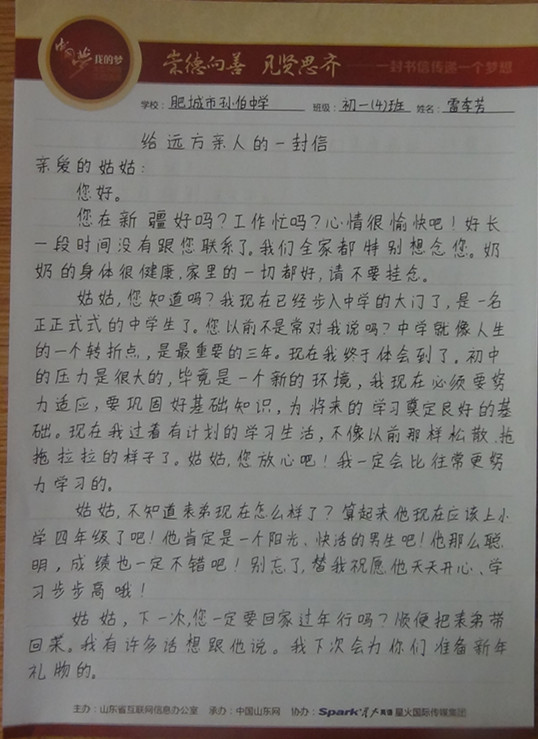 中国梦 我的梦
崇德向善 见贤思齐 一封书信传递一个梦想
学校：肥城市孙伯中学 班级：初一(4)班 姓名：雷李芳
给远方亲人的一封信
亲爱的姑姑：
您好。
您在新疆好吗？工作忙吗？心情很愉快吧！好长
一段时间没有跟您联系了。我们全家都特别想念您。奶
奶的身体很健康，家里的一切都好，请不要挂念。
姑姑，您知道吗？我现在已经步入中学的大门了，是一名
正正式式的中学生了。您以前不是常对我说吗？中学就像人生
的一个转折点，是最重要的三年。现在我终于体会到了。初中
的压力是很大的，毕竟是一个新的环境，我现在必须要努
力适应，要巩固好基础知识，为将来的学习奠定良好的基
础。现在我过着有计划的学习生活，不像以前那样松散、拖
拖拉拉的样子了。姑姑，您放心吧！我一定会比往常更努
力学习的。
姑姑，不知道表弟现在怎么样了？算起来他现在应该上小
学四年级了吧！他肯定是一个阳光、快活的男生吧！他那么聪
明，成绩也一定不错吧！别忘了，替我祝愿他天天开心、学
习步步高哦！
姑姑，下一次，您一定要回家过年行吗？顺便把表弟带
回来。我有许多话想跟他说。我下次会为你们准备新年
礼物的。
主办：山东省互联网信息办公室 承办：中国山东网 协办：Spark 星火英语 星火国际传媒集团